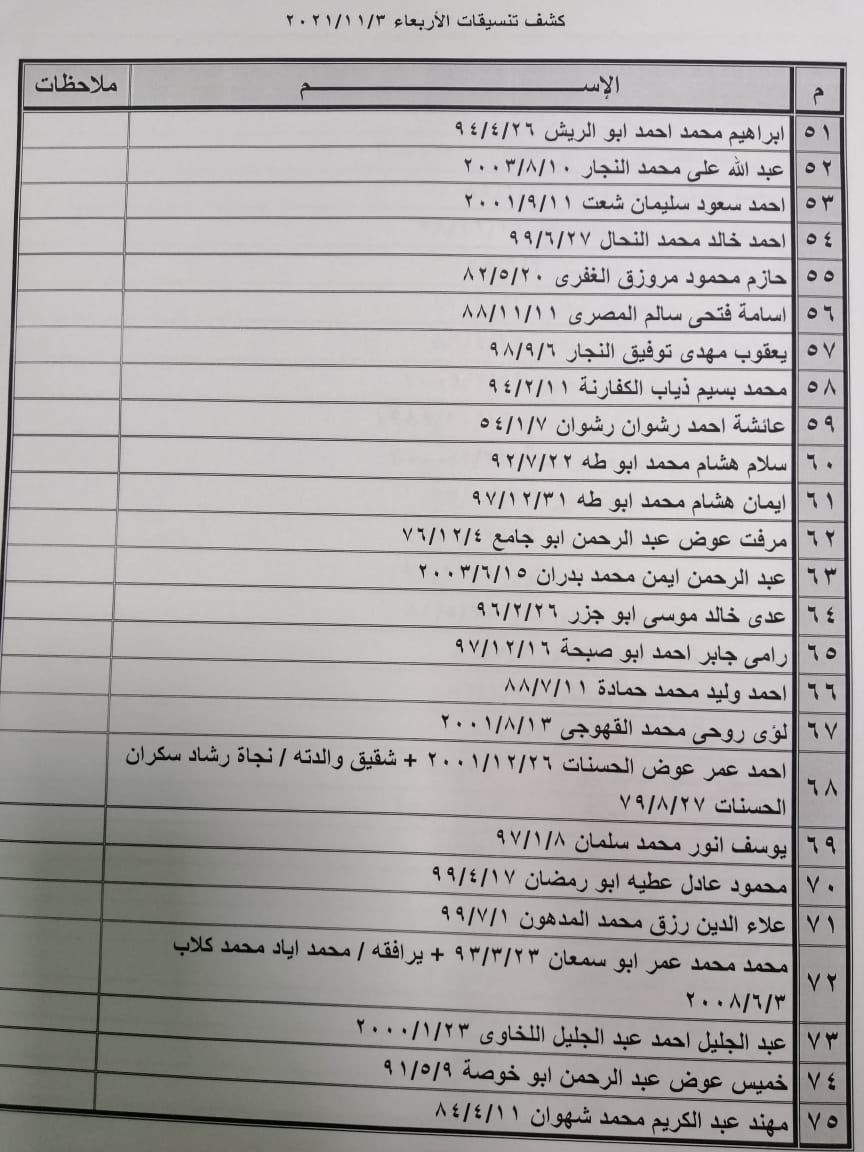 كشف تنسيقات الأربعاء ٢٠٢١/١١/٣
م الإســـــــــــم ملاحظات
٥١ ابراهيم محمد احمد ابو الريش ٩٤/٤/٢٦
٥٢ عبد الله على محمد النجار ٢٠٠٣/٨/١٠
٥٣ احمد سعود سليمان شعت ٢٠٠١/٩/١١
٥٤ احمد خالد محمد النحال ٩٩/٦/٢٧
٥٥ حازم محمود مروزق الغفرى ٨٢/٥/٢٠
٥٦ اسامة فتحى سالم المصرى ٨٨/١١/١١
٥٧ يعقوب مهدى توفيق النجار ٩٨/٩/٦
٥٨ محمد بسيم ذياب الكفارنة ٩٤/٢/١١
٥٩ عائشة احمد رشوان رشوان ٥٤/١/٧
٦٠ سلام هشام محمد ابو طه ٩٢/٧/٢٢
٦١ ايمان هشام محمد ابو طه ٩٧/١٢/٣١
٦٢ مرفت عوض عبد الرحمن ابو جامع ٧٦/١٢/٤
٦٣ عبد الرحمن ايمن محمد بدران ٢٠٠٣/٦/١٥
٦٤ عدى خالد موسى ابو جزر ٩٦/٢/٢٦
٦٥ رامى جابر احمد ابو صبحة ٩٧/١٢/١٦
٦٦ احمد وليد محمد حمادة ٨٨/٧/١١
٦٧ لؤى روحى محمد القهوجى ٢٠٠١/٨/١٣
٦٨ احمد عمر عوض الحسنات ٢٠٠١/١٢/٢٦ + شقيق والدته / نجاة رشاد سكران
الحسنات ٧٩/٨/٢٧
٦٩ يوسف انور محمد سلمان ٩٧/١/٨
٧٠ محمود عادل عطيه ابو رمضان ٩٩/٤/١٧
٧١ علاء الدين رزق محمد المدهون ٩٩/٧/١
٧٢ محمد محمد عمر ابو سمعان ٩٣/٣/٢٣ + يرافقه / محمد اياد محمد كلاب
٢٠٠٨/٦/٣
٧٣ عبد الجليل احمد عبد الجليل اللخاوى ٢٠٠٠/١/٢٣
٧٤ خميس عوض عبد الرحمن ابو خوصة ٩١/٥/٩
٧٥ مهند عبد الكريم محمد شهوان ٨٤/٤/١١